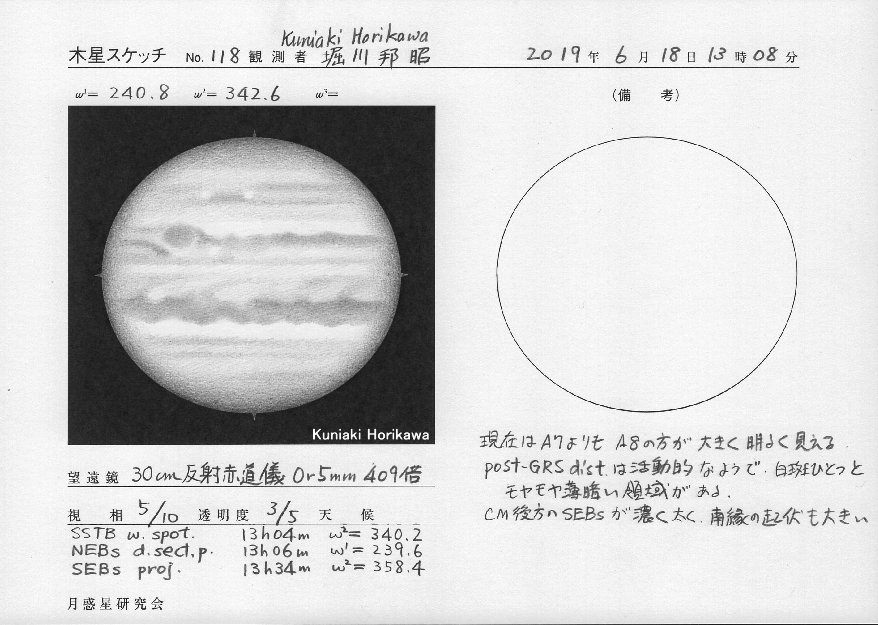 Kuniaki Horikawa
木星スケッチ No. 118 観測者 堀川邦昭 2019年 6月 18日 13時 08分
ω¹= 240.8 ω²= 342.6 ω³=
(備 考)
Kuniaki Horikawa
現在はA7よりも A8の方が大きく明るく見える.
post-GRS dist.は活動的なようで、白斑ひとつと
モヤモヤ薄暗い領域がある.
CM後方のSEBsが濃く太く、南縁の起伏も大きい
望遠鏡 30cm反射赤道儀 Or5mm 409倍
視 相 5/10 透明度 3/5 天 候
SSTB w. spot. 13h04m ω²= 340.2
NEBs d.sect,p. 13h06m ω¹= 239.6
SEBs proj. 13h34m ω²= 358.4
月惑星研究会